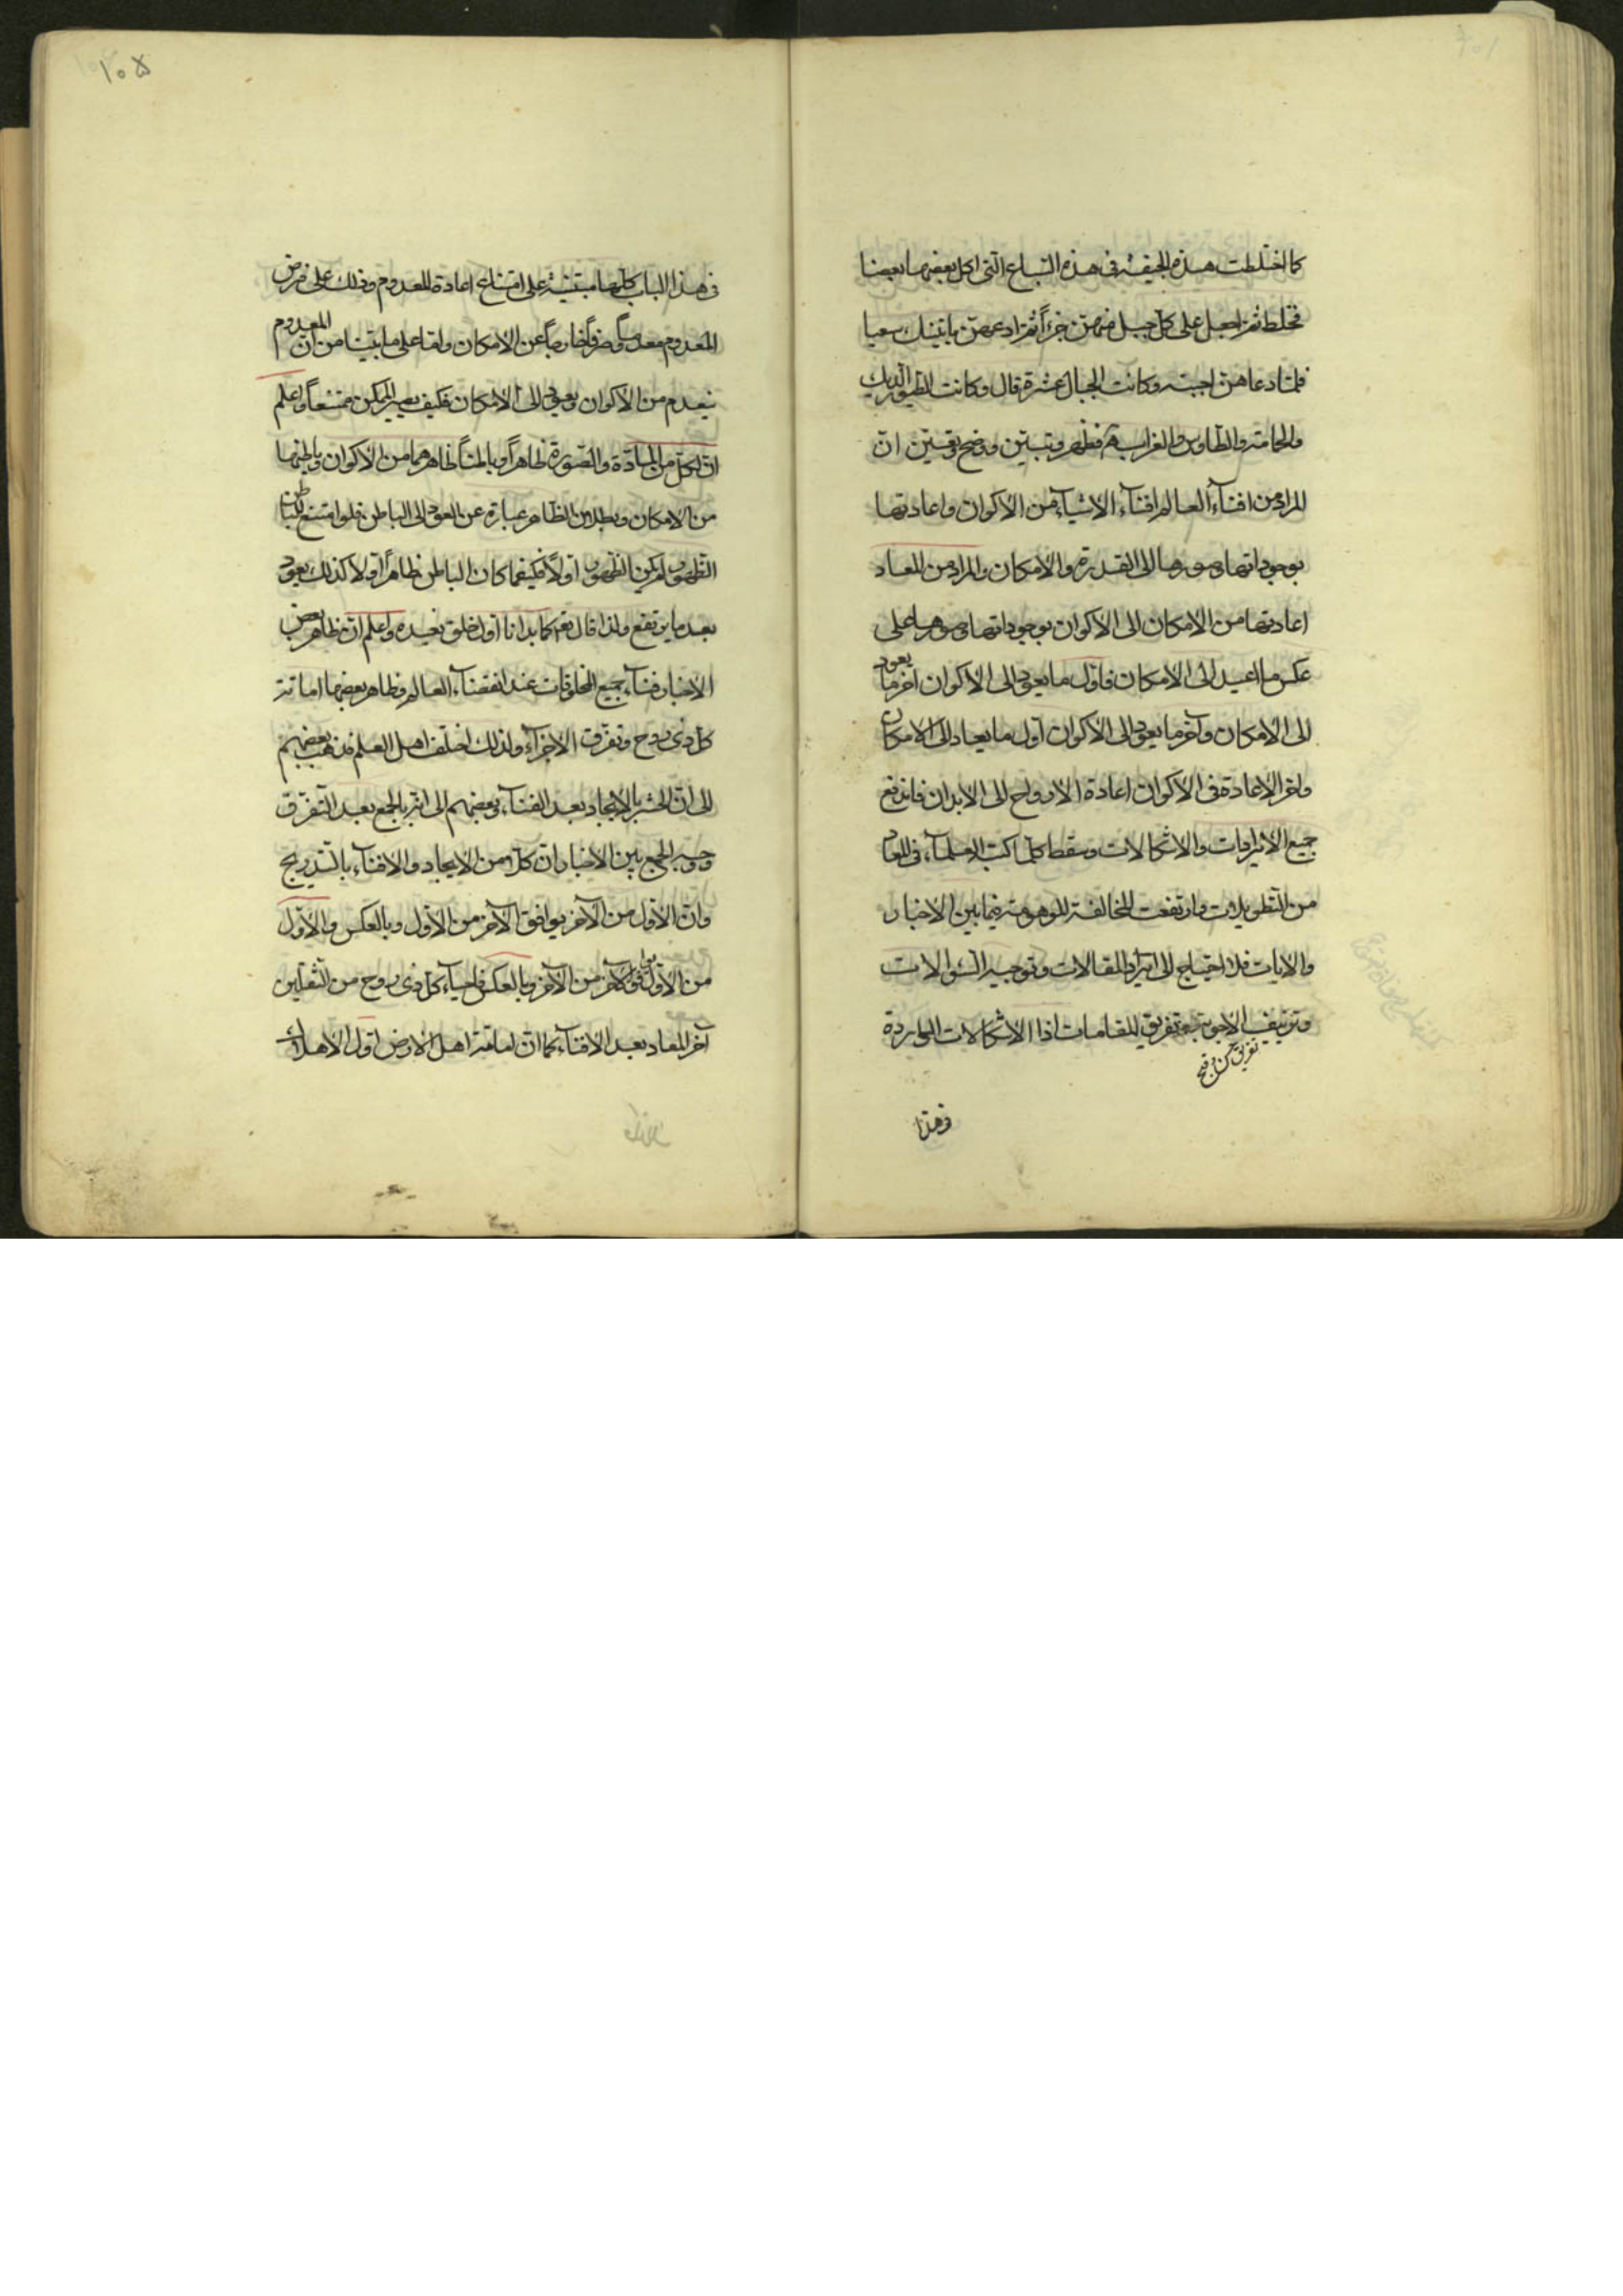 كما اختلطت هذه الجيفة فى هذه السباع التى اكل بعضها بعضا
فخلط ثم اجعل على كل جبل منهن جزءاً ثم ادعهن ياتينك سعيا
فلما دعاهن اجبنه وكانت الجبال عشرة قال وكانت الطيور الديك
والحمامة والطاوس والغراب فظهر وتبين ووضح وتعين ان
المراد من افناء العالم افناء الاشياء من الاكوان واعادتها
بوجوداتها وصورها الى القدرة والامكان والمراد من المعاد
اعادتها من الامكان الى الاكوان بوجوداتها وصورها على
عكس ما اعيد الى الامكان فاول ما يعود الى الاكوان اخر ما يعود
الى الامكان وآخر ما يعود الى الاكوان اول ما يعاد الى الامكان
واخر الاعادة فى الاكوان اعادة الارواح الى الابدان فاندفع
جميع الايرادات والاشكالات وسقط كلما كتب العلماء فى المعاد
من التطويلات وارتفعت المخالفة الموهومة فيما بين الاخبار
والايات فلا احتياج الى ايراد المقالات وتوجيه السؤالات
وتزييف الاجوبة وتفريق المقامات اذا الاشكالات الواردة
فى هذا
١٠٥
فى هذا الباب كلها مبتنية على امتناع اعادة المعدوم وذلك على فرض
المعدوم معدوماً صرفاً خارجاً عن الامكان واما على ما بينا من ان المعدوم
ينعدم من الاكوان ويعود الى الامكان فكيف يصير الممكن ممتنعاً واعلم
ان لكل من المادة والصورة ظاهراً وباطناً ظاهرهما من الاكوان وباطنهما
من الامكان وبطلان الظاهر عبارة عن العود الى الباطن فلو امتنع للباطن
الظهور لم يكن الظهور اولاً فكيفما كان الباطن ظاهراً اولا كذلك يعود
بعد ما يرتفع ولذا قال تعم كما بدانا اول خلق نعيده واعلم ان ظاهر بعض
الاخبار فناء جميع المخلوقات عند انقضاء العالم وظاهر بعضها اماتة
كل ذى روح وتفرق الاجزاء ولذلك اختلف اهل العلم فذهب بعضهم
الى ان الحشر بالايجاد بعد الفناء وبعضهم الى انه بالجمع بعد التفرق
ووجه الجمع بين الاخبار ان كلا من الايجاد والافناء بالتدريج
وان الاول من الآخر يوافق الآخر من الاول وبالعكس والاول
من الاول يوافق الآخر من الآخر وبالعكس فاحياء كل ذى روح من الثقلين
آخر المعاد بعد الافناء كما ان اماتة اهل الارض اول الاهلاك